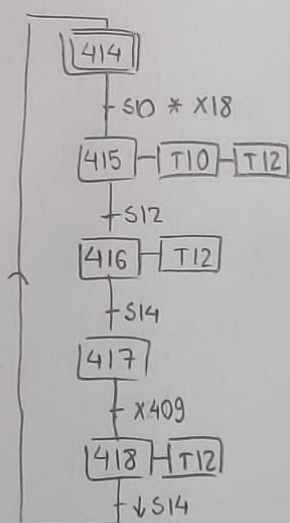 414
S10 * X18
415 T10 T12
S12
416 T12
S14
417
X409
418 T12
↓ S14